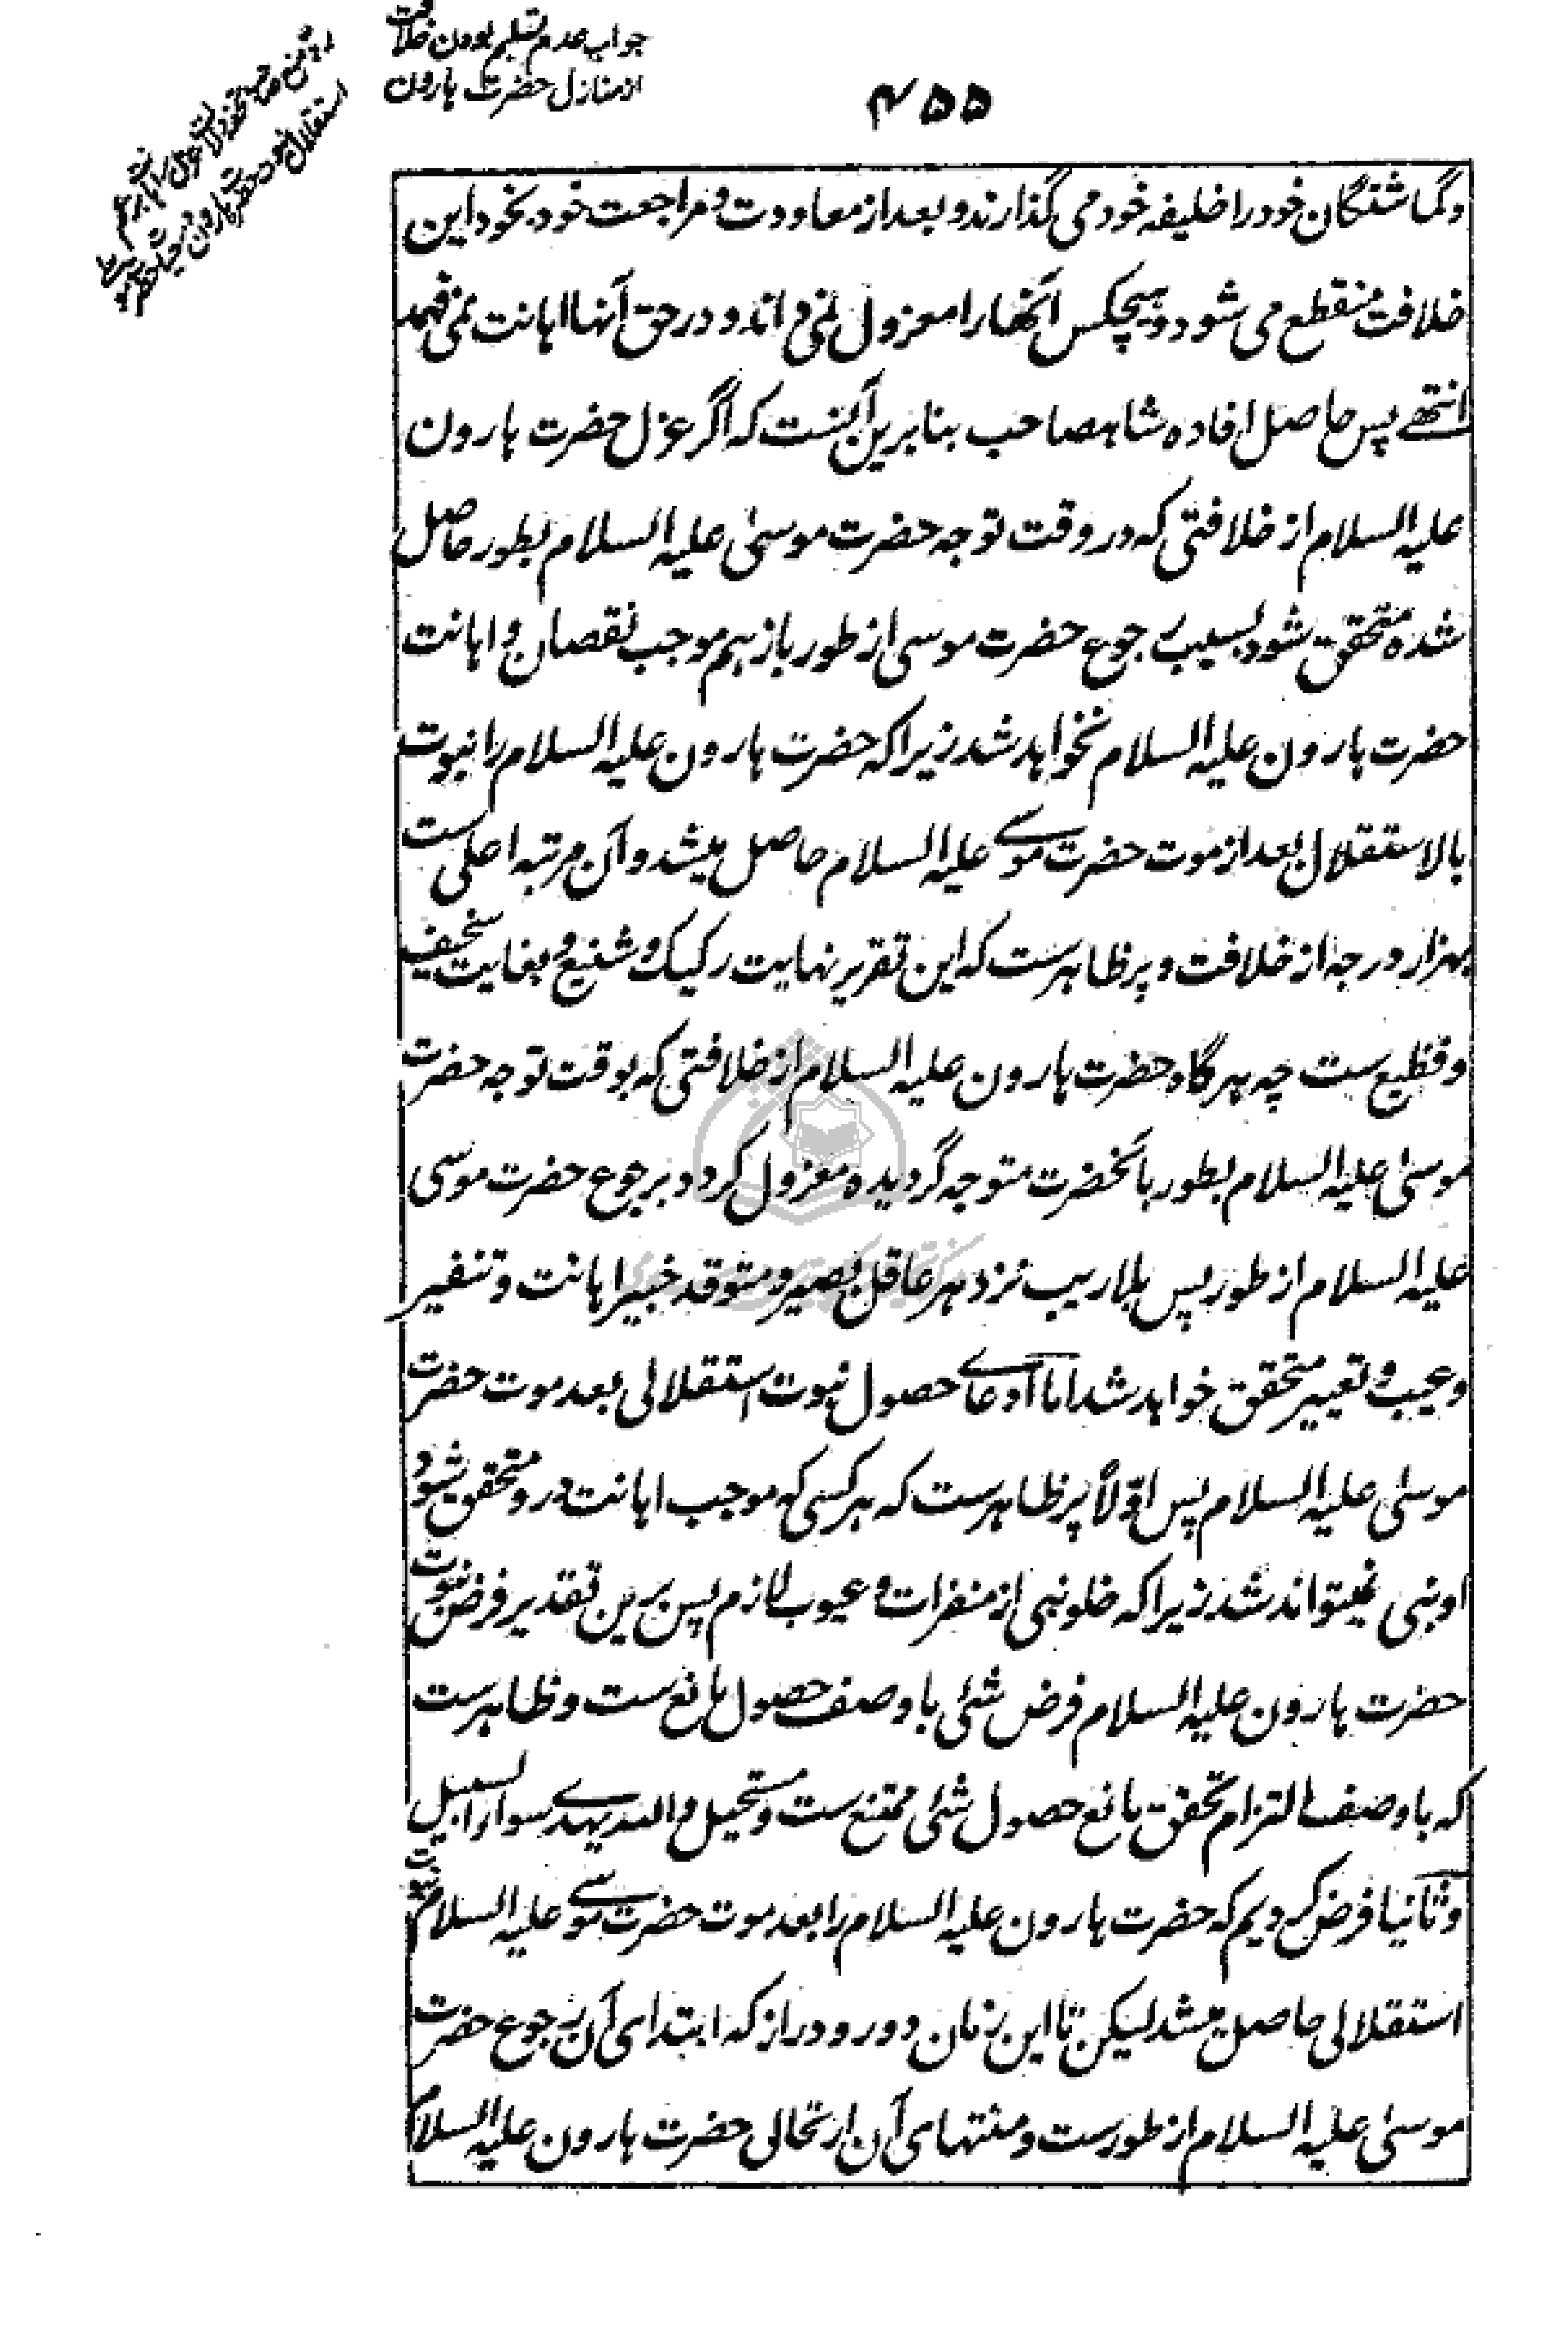 جواب عدم تسلیم بودن خلافت
از منازل حضرت ہارون
۴۵۵
وگماشتگان خود را خلیفہ خود می گذارند و بعد از معاودت و مراجعت خود بخود این
خلافت منقطع می شود و ہیچکس آنھا را معزول نمی داند و در حق آنہا اہانت نمی فہمد
انتھے پس حاصل افادہ شاہصاحب بنابرین آنست کہ اگر عزل حضرت ہارون
علیہ السلام از خلافتی کہ در وقت توجہ حضرت موسیٰ علیہ السلام بطور حاصل
شدہ متحقق شود بسبب رجوع حضرت موسی از طور باز ہم موجب نقصان و اہانت
حضرت ہارون علیہ السلام نخواہد شد زیرا کہ حضرت ہارون علیہ السلام را نبوت
بالاستقلال بعد از موت حضرت موسے علیہ السلام حاصل میشد و آن مرتبہ اعلی ست
بہزار درجہ از خلافت و پر ظاہرست کہ این تقریر نہایت رکیک و شنیع و بغایت سخیف
و فظیع ست چہ ہر گاہ حضرت ہارون علیہ السلام از خلافتی کہ بوقت توجہ حضرت
موسیٰ علیہ السلام بطور بآنحضرت متوجہ گردیدہ معزول گردد برجوع حضرت موسی
علیہ السلام از طور پس بلا ریب نزد ہر عاقل بصیر و متوقد خبیر اہانت و تنفیر
و عیب و تعییر متحقق خواہد شد اما ادعاے حصول نبوت استقلالی بعد موت حضرت
موسیٰ علیہ السلام پس اوّلاً پر ظاہرست کہ ہر کسی کہ موجب اہانت درو متحقق شود
او نبی نمیتواند شد زیرا کہ خلو نبی از منفرات و عیوب لازم پس برین تقدیر فرض نبوت
حضرت ہارون علیہ السلام فرض شئی با وصف حصول مانع ست و ظاہرست
کہ با وصف التزام تحقق مانع حصول شئی ممتنع ست و مستحیل واللہ یہدے سواء السبیل
و ثانیا فرض کردیم کہ حضرت ہارون علیہ السلام را بعد موت حضرت موسے علیہ السلام نبوت
استقلالی حاصل میشد لیکن تا این زمان دور و دراز کہ ابتدای آن رجوع حضرت
موسیٰ علیہ السلام از طورست و منتہای آن ارتحالی حضرت ہارون علیہ السلام